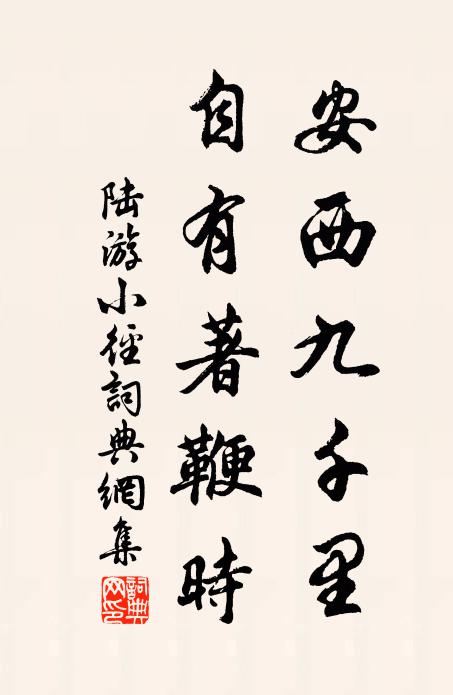 安西九千里
自有著鞭時
陆游小徑詞典網集
詞典网印